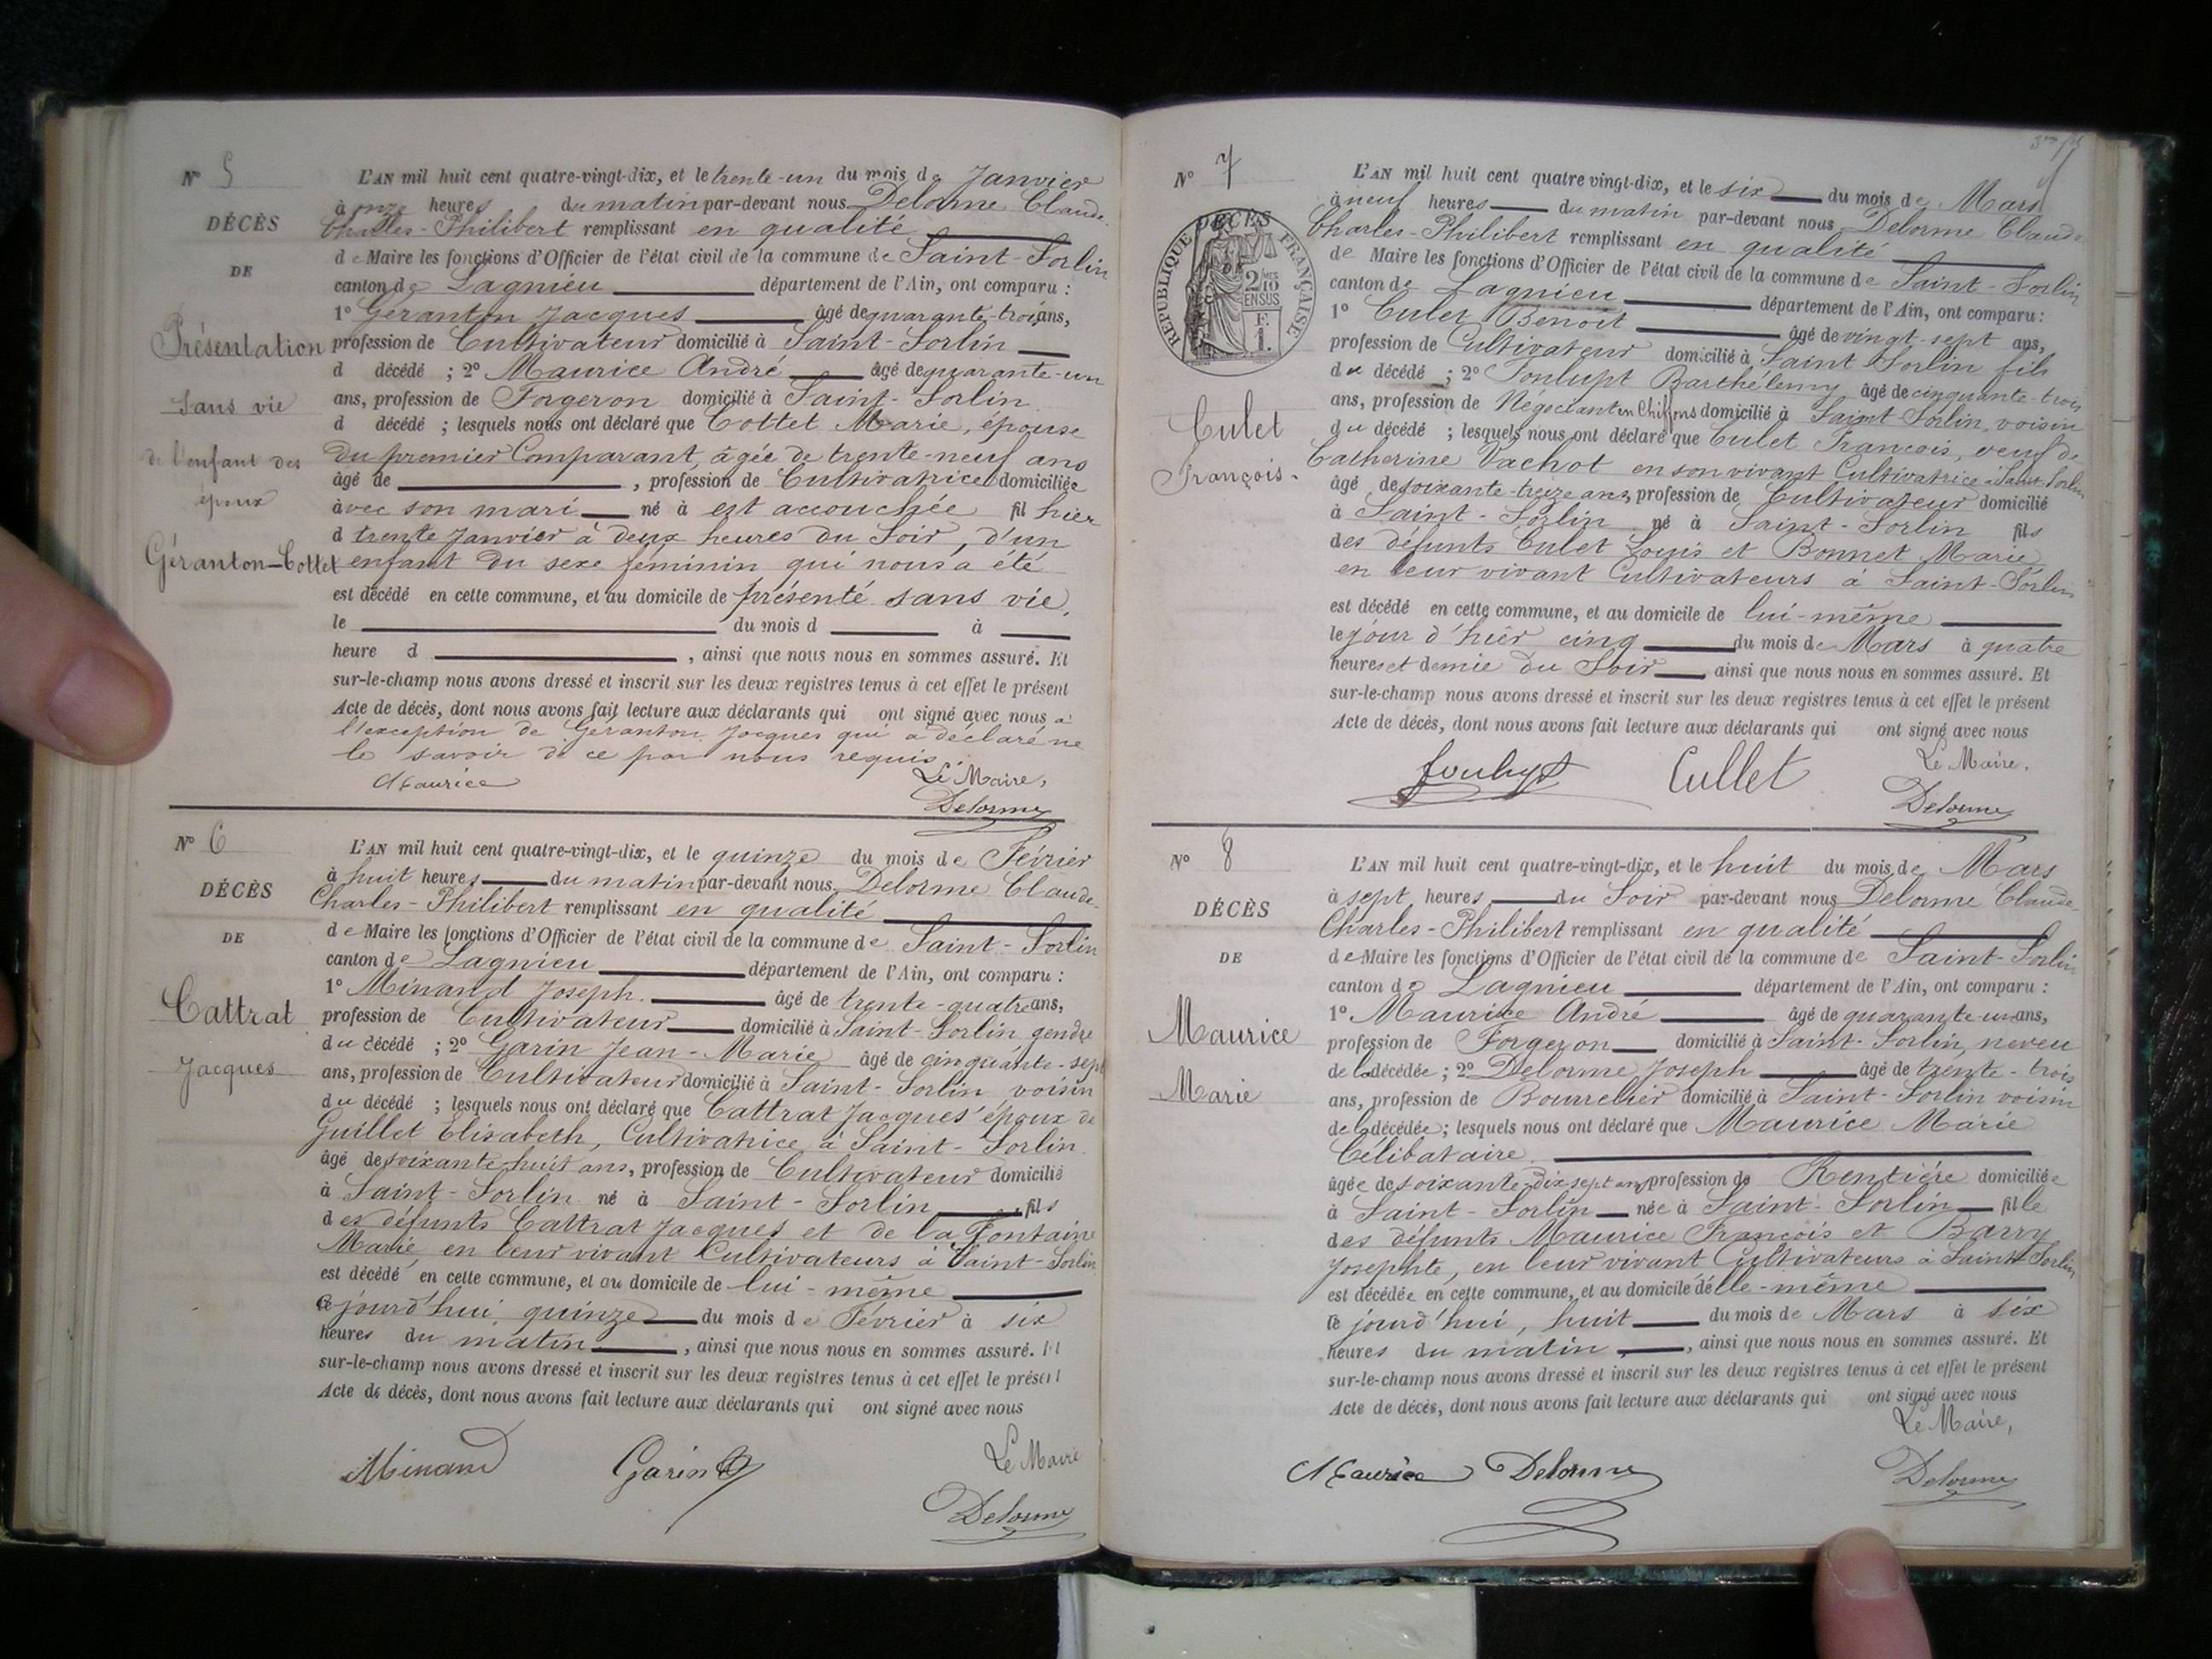 N° 5
DÉCÈS
DE
Présentation
sans vie
de l'enfant des
époux
Géranton-Cottet
L'AN mil huit cent quatre-vingt-dix, et le trente-un du mois de Janvier
à onze heures du matin par-devant nous Delorme Claude-
Charles-Philibert remplissant en qualité
de Maire les fonctions d'Officier de l'état civil de la commune de Saint-Sorlin
canton de Lagnieu département de l'Ain, ont comparu :
1° Géranton Jacques âgé de quarante-trois ans,
profession de Cultivateur domicilié à Saint-Sorlin
d décédé ; 2° Maurice André âgé de quarante-un
ans, profession de Forgeron domicilié à Saint-Sorlin
d décédé ; lesquels nous ont déclaré que Cottet Marie, épouse
du premier Comparant, âgée de trente-neuf ans
âgé de , profession de Cultivatrice domiciliée
avec son mari né à est accouchée fil hier
d trente Janvier à deux heures du Soir, d'un
enfant du sexe féminin qui nous a été
est décédé en cette commune, et au domicile de présenté sans vie.
le du mois d à
heure d , ainsi que nous nous en sommes assuré. Et
sur-le-champ nous avons dressé et inscrit sur les deux registres tenus à cet effet le présent
Acte de décès, dont nous avons fait lecture aux déclarants qui ont signé avec nous à
l'exception de Géranton Jacques qui a déclaré ne
le savoir de ce par nous requis.
Maurice
Le Maire,
Delorme
N° 6
DÉCÈS
DE
Cattrat
Jacques
L'AN mil huit cent quatre-vingt-dix, et le quinze du mois de Février
à huit heures du matin par-devant nous Delorme Claude-
Charles-Philibert remplissant en qualité
de Maire les fonctions d'Officier de l'état civil de la commune de Saint-Sorlin
canton de Lagnieu département de l'Ain, ont comparu :
1° Minand Joseph âgé de trente-quatre ans,
profession de Cultivateur domicilié à Saint-Sorlin gendre
du décédé ; 2° Garin Jean-Marie âgé de cinquante-sept
ans, profession de Cultivateur domicilié à Saint-Sorlin voisin
du décédé ; lesquels nous ont déclaré que Cattrat Jacques époux de
Guillet Elisabeth, Cultivatrice à Saint-Sorlin
âgé de soixante huit ans, profession de Cultivateur domicilié
à Saint-Sorlin né à Saint-Sorlin fils
des défunts Cattrat Jacques et de la Fontaine
Marie en leur vivant Cultivateurs à Saint-Sorlin
est décédé en cette commune, et au domicile de lui-même
ce jourd'hui quinze du mois de Février à six
heures du matin , ainsi que nous nous en sommes assuré. Et
sur-le-champ nous avons dressé et inscrit sur les deux registres tenus à cet effet le présent
Acte de décès, dont nous avons fait lecture aux déclarants qui ont signé avec nous
Minand
Garin
Le Maire
Delorme
N° 7
DÉCÈS
DE
REPUBLIQUE FRANÇAISE
2/10
EN SUS
F.
1.
Culet
François.
L'AN mil huit cent quatre vingt-dix, et le six du mois de Mars
à neuf heures du matin par-devant nous Delorme Claude-
Charles-Philibert remplissant en qualité
de Maire les fonctions d'Officier de l'état civil de la commune de Saint-Sorlin
canton de Lagnieu département de l'Ain, ont comparu :
1° Culet Benoit âgé de vingt-sept ans,
profession de Cultivateur domicilié à Saint Sorlin fils
du décédé ; 2° Fonlupt Barthélemy âgé de cinquante-trois
ans, profession de Négociant en Chiffons domicilié à Saint Sorlin, voisin
du décédé ; lesquels nous ont déclaré que Culet François, veuf de
Catherine Vachot en son vivant Cultivatrice à Saint Sorlin
âgé de soixante-treize ans, profession de Cultivateur domicilié
à Saint-Sorlin né à Saint-Sorlin fils
des défunts Culet Louis et Bonnet Marie
en leur vivant Cultivateurs à Saint-Sorlin
est décédé en cette commune, et au domicile de lui-même
le jour d'hier cinq du mois de Mars à quatre
heures et demie du Soir , ainsi que nous nous en sommes assuré. Et
sur-le-champ nous avons dressé et inscrit sur les deux registres tenus à cet effet le présent
Acte de décès, dont nous avons fait lecture aux déclarants qui ont signé avec nous
Le Maire.
Cullet
Delorme
N° 8
DÉCÈS
DE
Maurice
Marie
L'AN mil huit cent quatre-vingt-dix, et le huit du mois de Mars
à sept heures du Soir par-devant nous Delorme Claude-
Charles-Philibert remplissant en qualité
de Maire les fonctions d'Officier de l'état civil de la commune de Saint-Sorlin
canton de Lagnieu département de l'Ain, ont comparu :
1° Maurice André âgé de quarante-un ans,
profession de Forgeron domicilié à Saint-Sorlin, neveu
de la décédée ; 2° Delorme Joseph âgé de trente-trois
ans, profession de Bourrelier domicilié à Saint-Sorlin voisin
de la décédée ; lesquels nous ont déclaré que Maurice Marie
Célibataire
âgée de soixante-dix sept ans, profession de Rentière domiciliée
à Saint-Sorlin née à Saint-Sorlin fille
des défunts Maurice François et Barry
Josephte, en leur vivant Cultivateurs à Saint-Sorlin
est décédée en cette commune, et au domicile d'elle-même
ce jourd'hui, huit du mois de Mars à six
heures du matin , ainsi que nous nous en sommes assuré. Et
sur-le-champ nous avons dressé et inscrit sur les deux registres tenus à cet effet le présent
Acte de décès, dont nous avons fait lecture aux déclarants qui ont signé avec nous
Le Maire,
Maurice
Delorme
Delorme